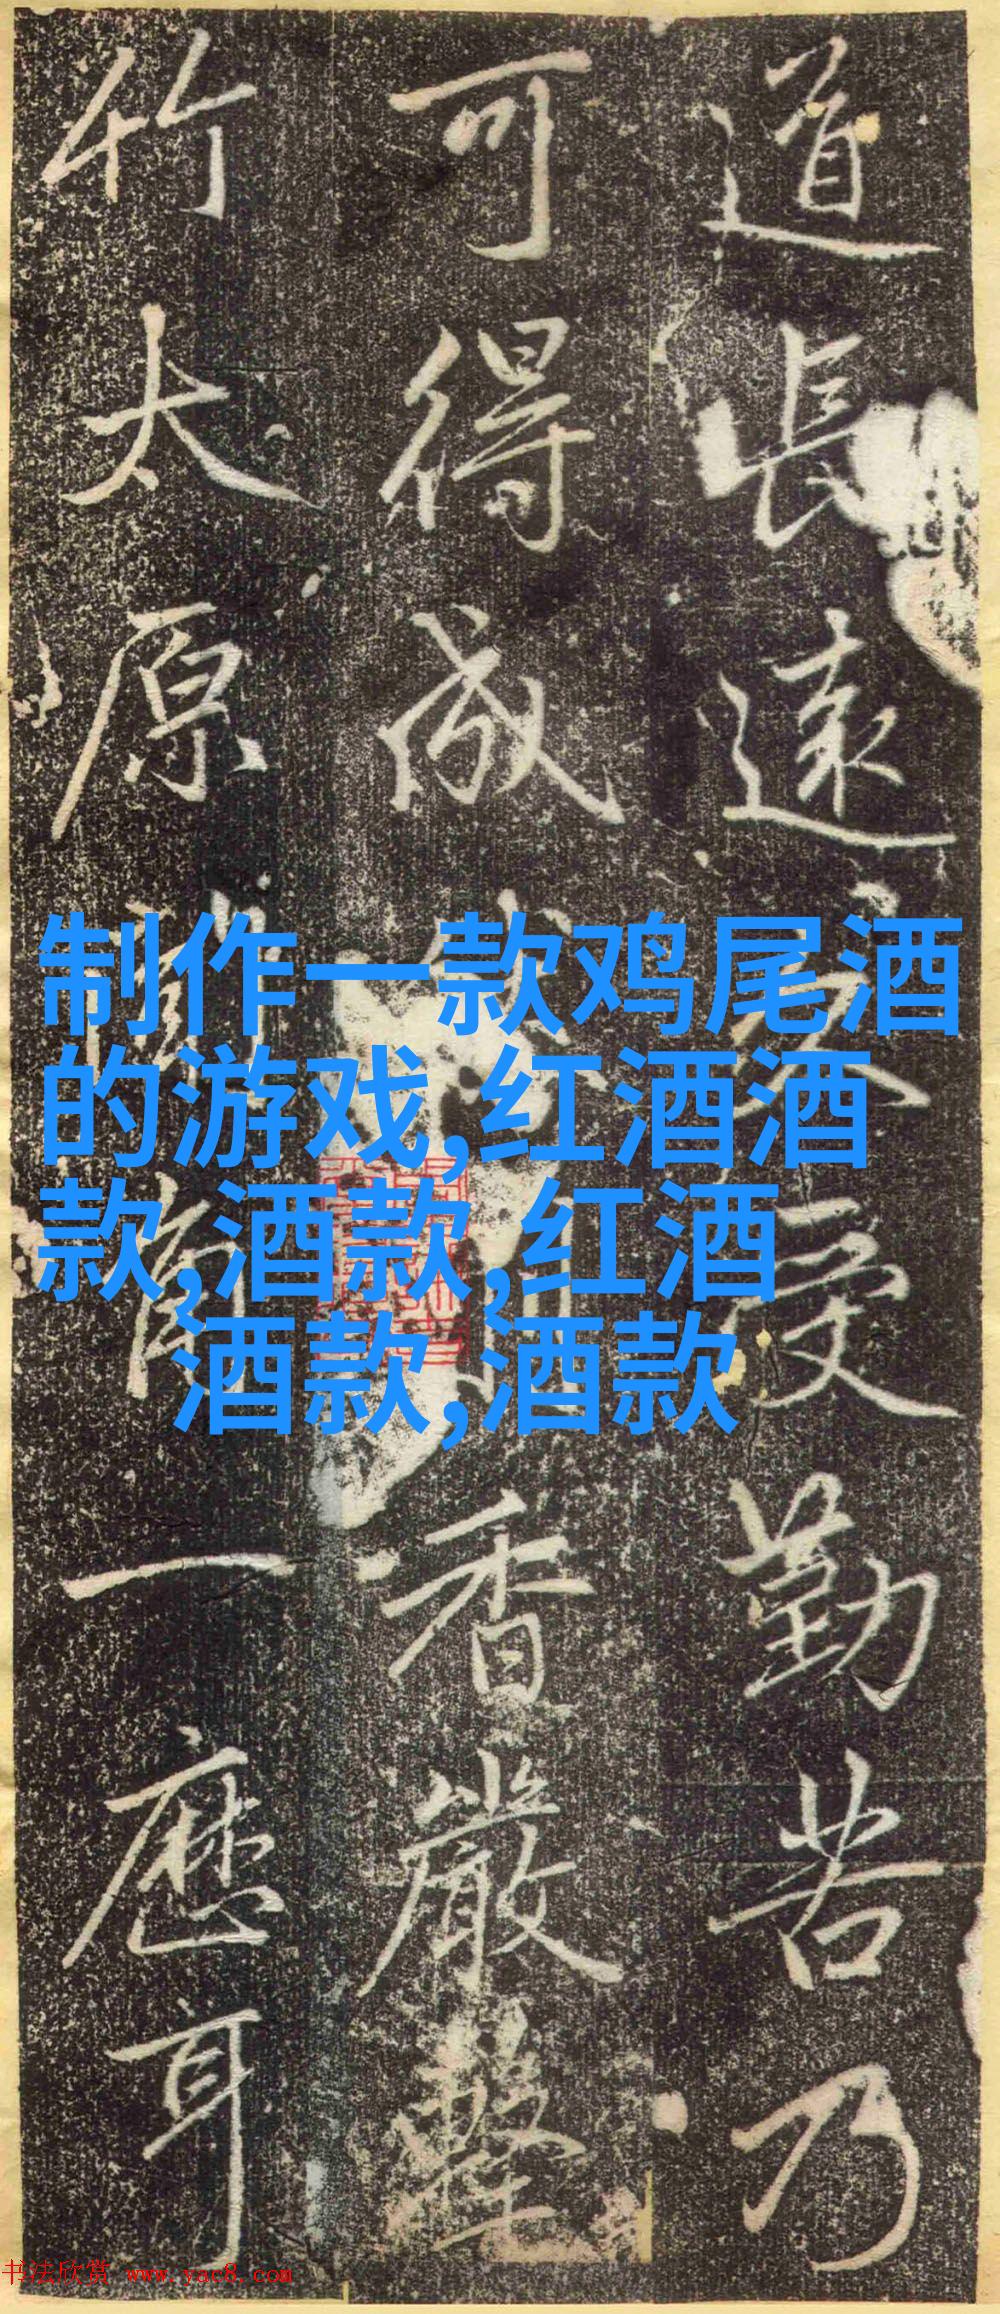 道長遠久受勤苦乃
可得成香嚴擊
竹太原聞一應耳
制作一款鸡尾酒
的游戏,红酒酒
款,酒款,红酒
酒款,酒款
书法欣赏 www.yac8.com